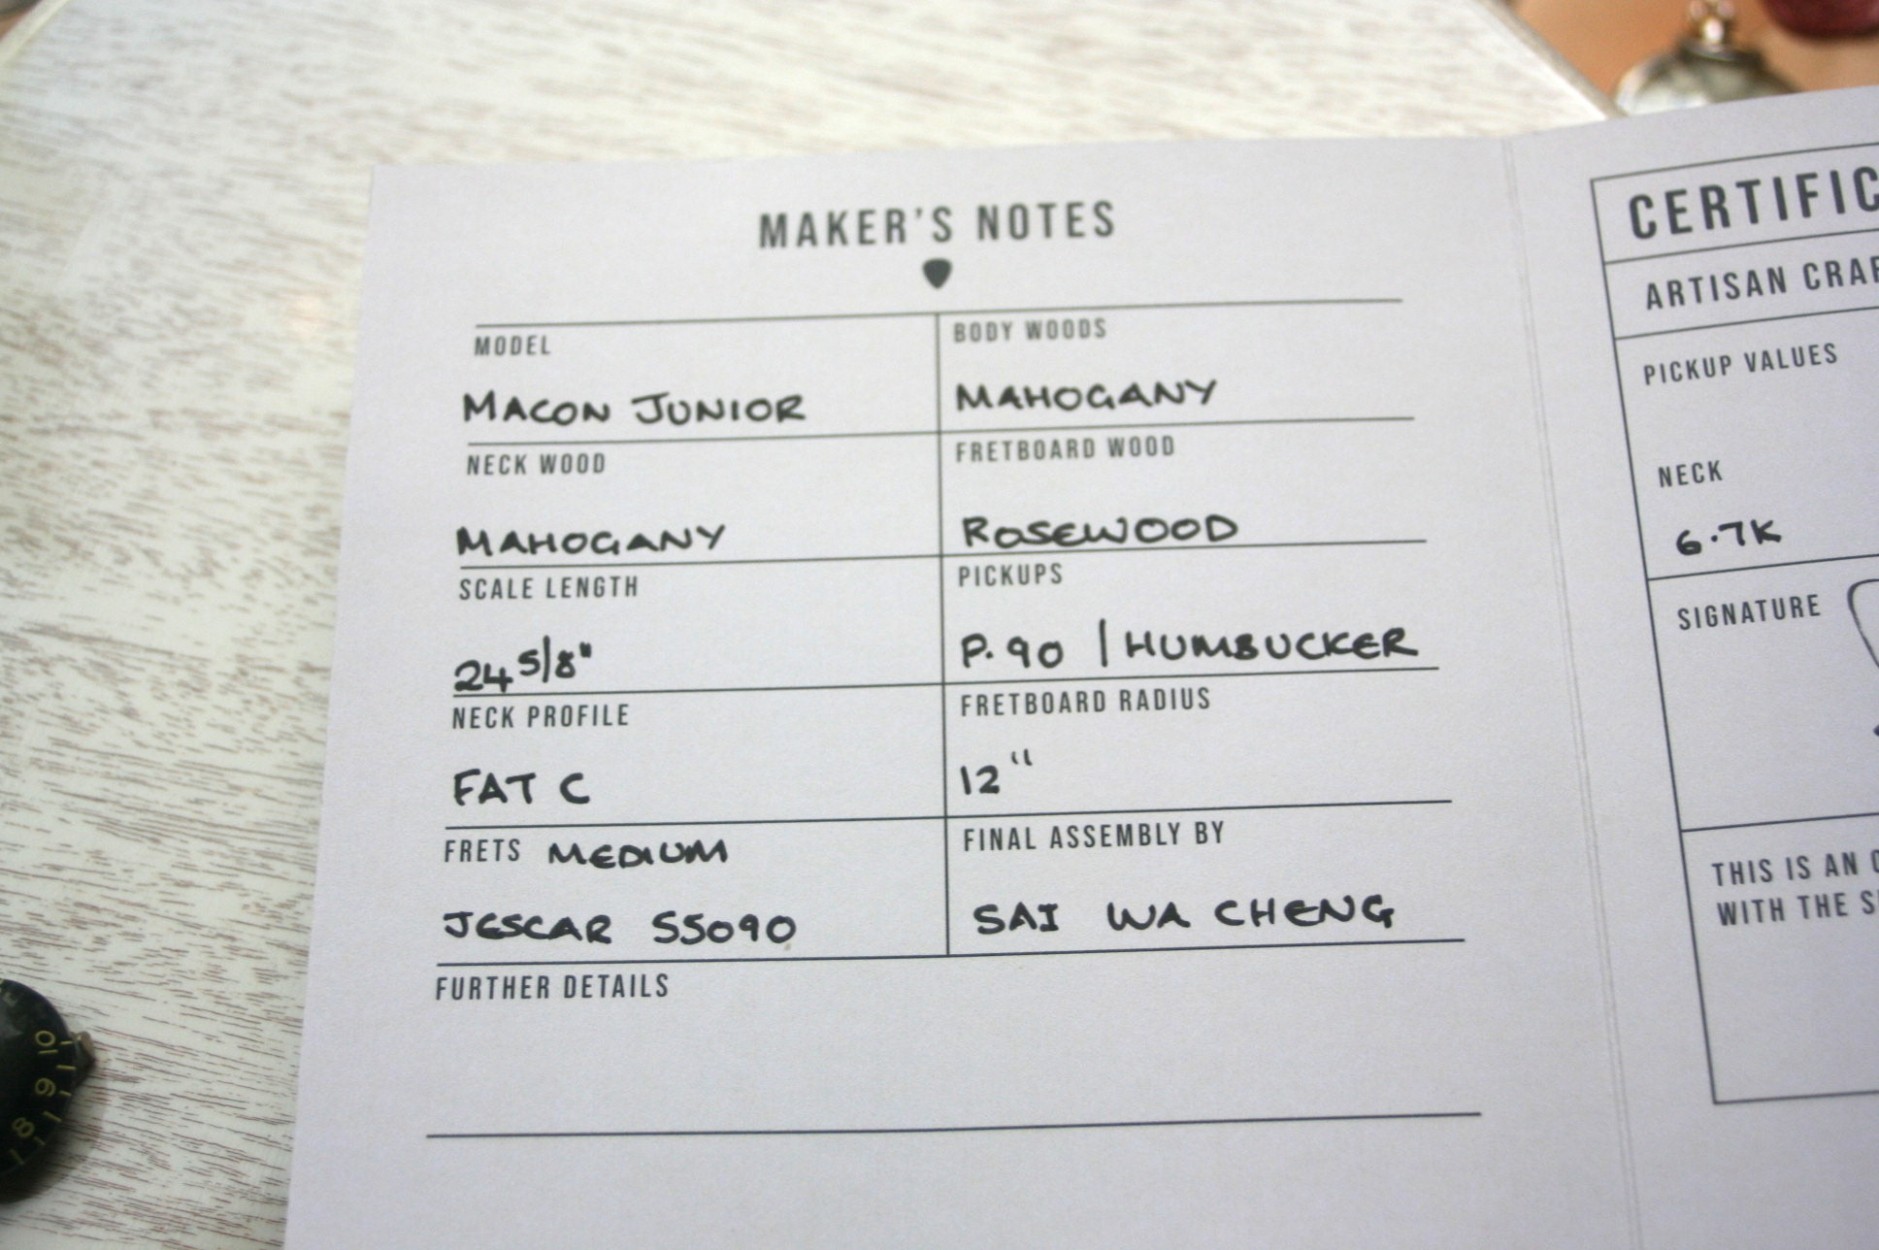 MAKER'S NOTES
MODEL
MACON JUNIOR
BODY WOODS
MAHOGANY
NECK WOOD
MAHOGANY
FRETBOARD WOOD
ROSEWOOD
SCALE LENGTH
24 5/8"
PICKUPS
P.90 | HUMBUCKER
NECK PROFILE
FAT C
FRETBOARD RADIUS
12"
FRETS MEDIUM
JESCAR 55090
FINAL ASSEMBLY BY
SAI WA CHENG
FURTHER DETAILS
CERTIFIC
ARTISAN CRAF
PICKUP VALUES
NECK
6.7K
SIGNATURE
THIS IS AN
WITH THE
10
9
8